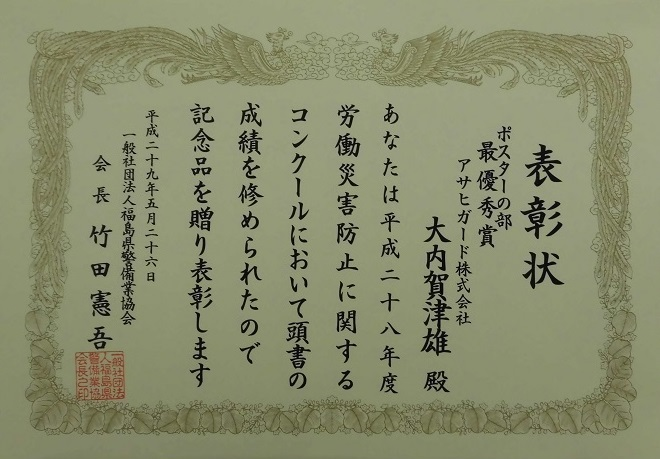 表彰状
ポスターの部
最優秀賞
アサヒガード株式会社
大内賀津雄 殿
あなたは平成二十八年度
労働災害防止に関する
コンクールにおいて頭書の
成績を修められたので
記念品を贈り表彰します
平成二十九年五月二十六日
一般社団法人福島県警備業協会
会長 竹田憲吾
一般社団法
人福島県
警備業協
会長之印